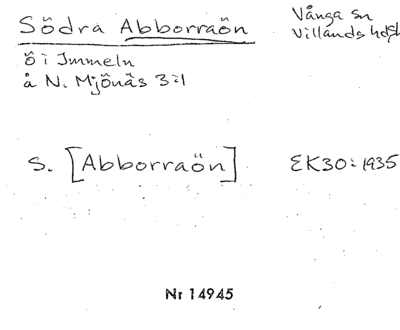 Södra Abborraön
Vånga sn
Villands hd
ö i Immeln
å N. Mjönäs 3:1
S. [Abborraön]
EK30:1935
Nr 14945